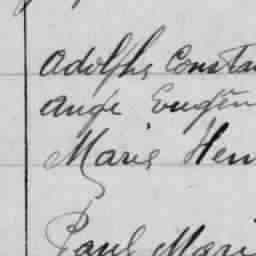 Adolphe Constan
Ange Eugèn
Marie Hen
Paul Mari